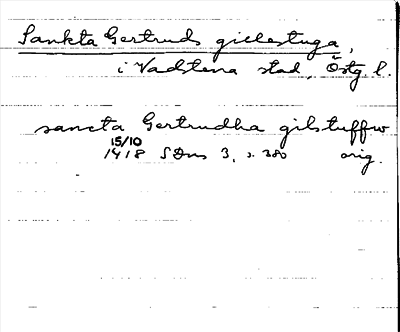 Sankta Gertruds gillestuga,
i Vadstena stad, Östg. l.
sancta Gertrudha gilstuffw
15/10
1418 SDns 3, s. 380 orig.